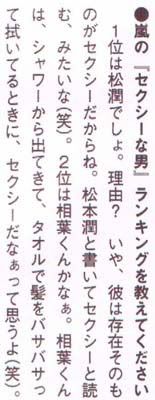 ●嵐の『セクシーな男』ランキングを教えてください
　1位は松潤でしょ。理由？　いや、彼は存在そのも
のがセクシーだからね。松本潤と書いてセクシーと読
む、みたいな(笑)。2位は相葉くんかなぁ。相葉くん
は、シャワーから出てきて、タオルで髪をバサバサっ
て拭いてるときに、セクシーだなぁって思うよ(笑)。